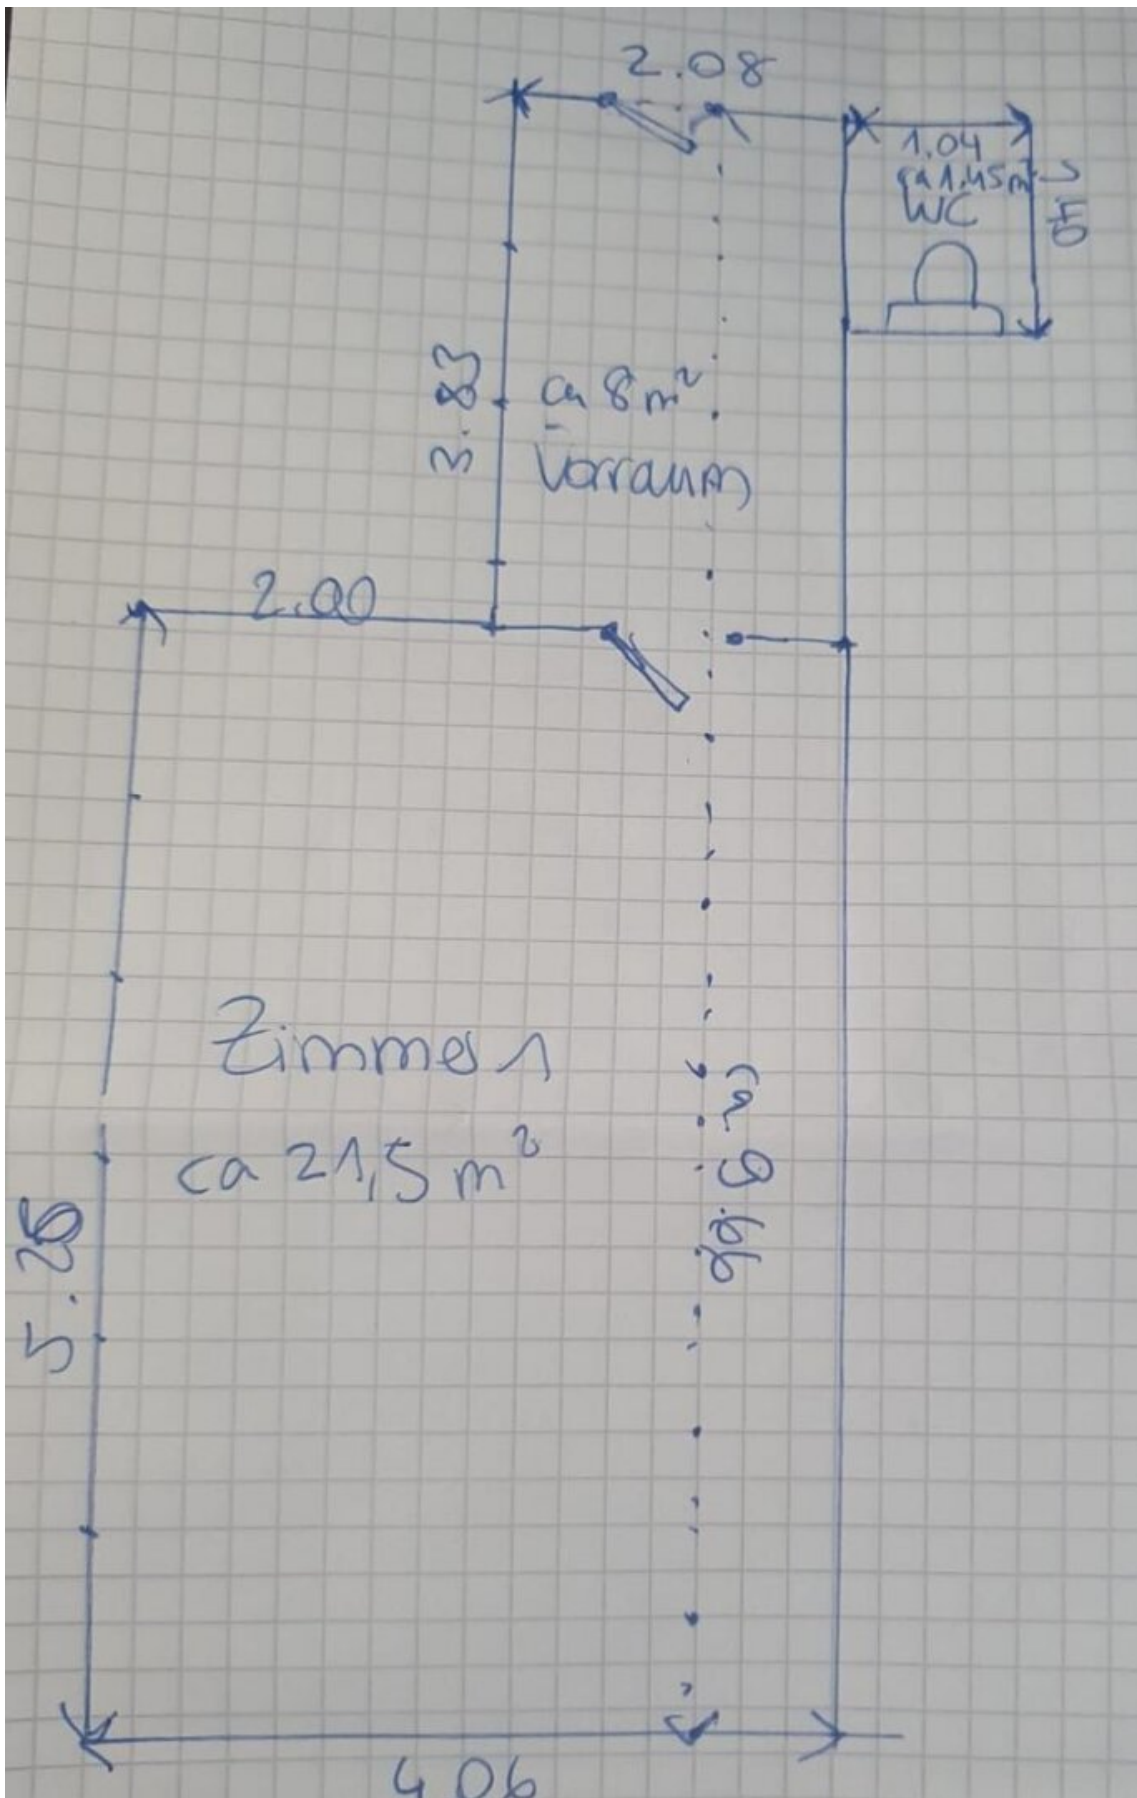 2.08
1.04
ca 1.45m
WC
3.83
ca 8 m²
Vorraum
2.00
Zimmer 1
ca 21,5 m²
5.26
4.06